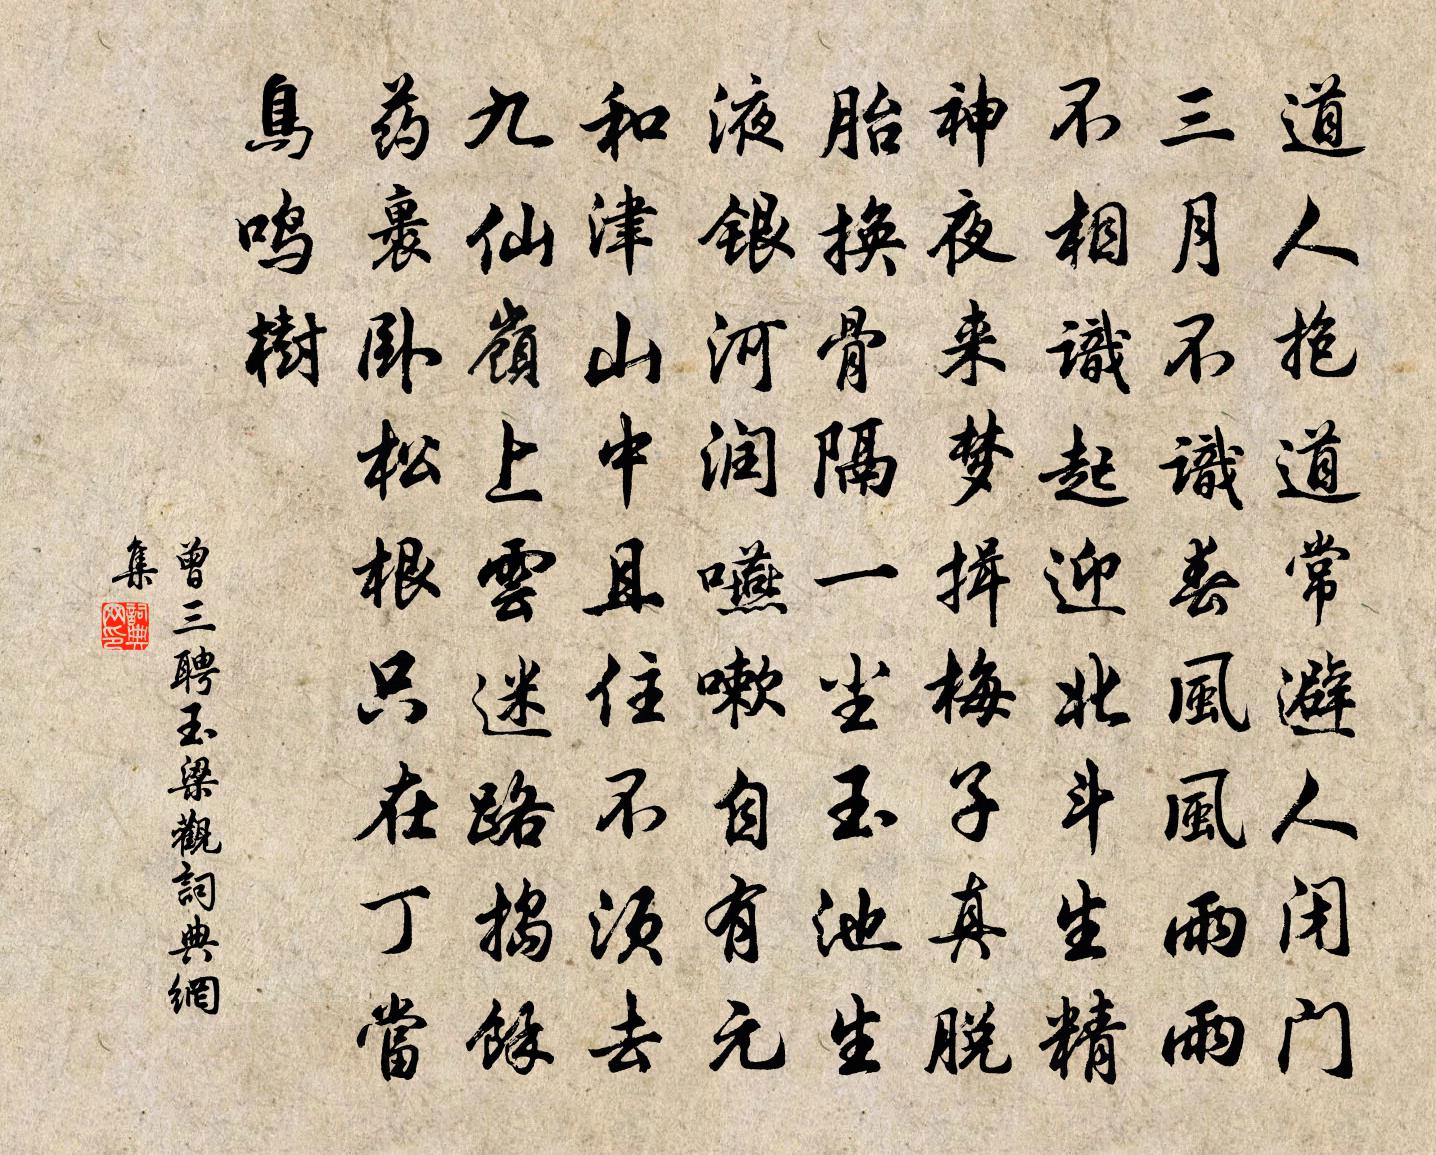 道人抱道常避人闭门
三月不識春風風雨雨
不相識起迎北斗生精
神夜来梦揖梅子真脱
胎换骨隔一尘玉池生
液银河润嚥嗽自有元
和津山中且住不须去
九仙嶺上雲迷路搗餘
药裹卧松根只在丁當
鳥鸣樹
曾三聘玉梁觀詞典網
集
詞典
网印